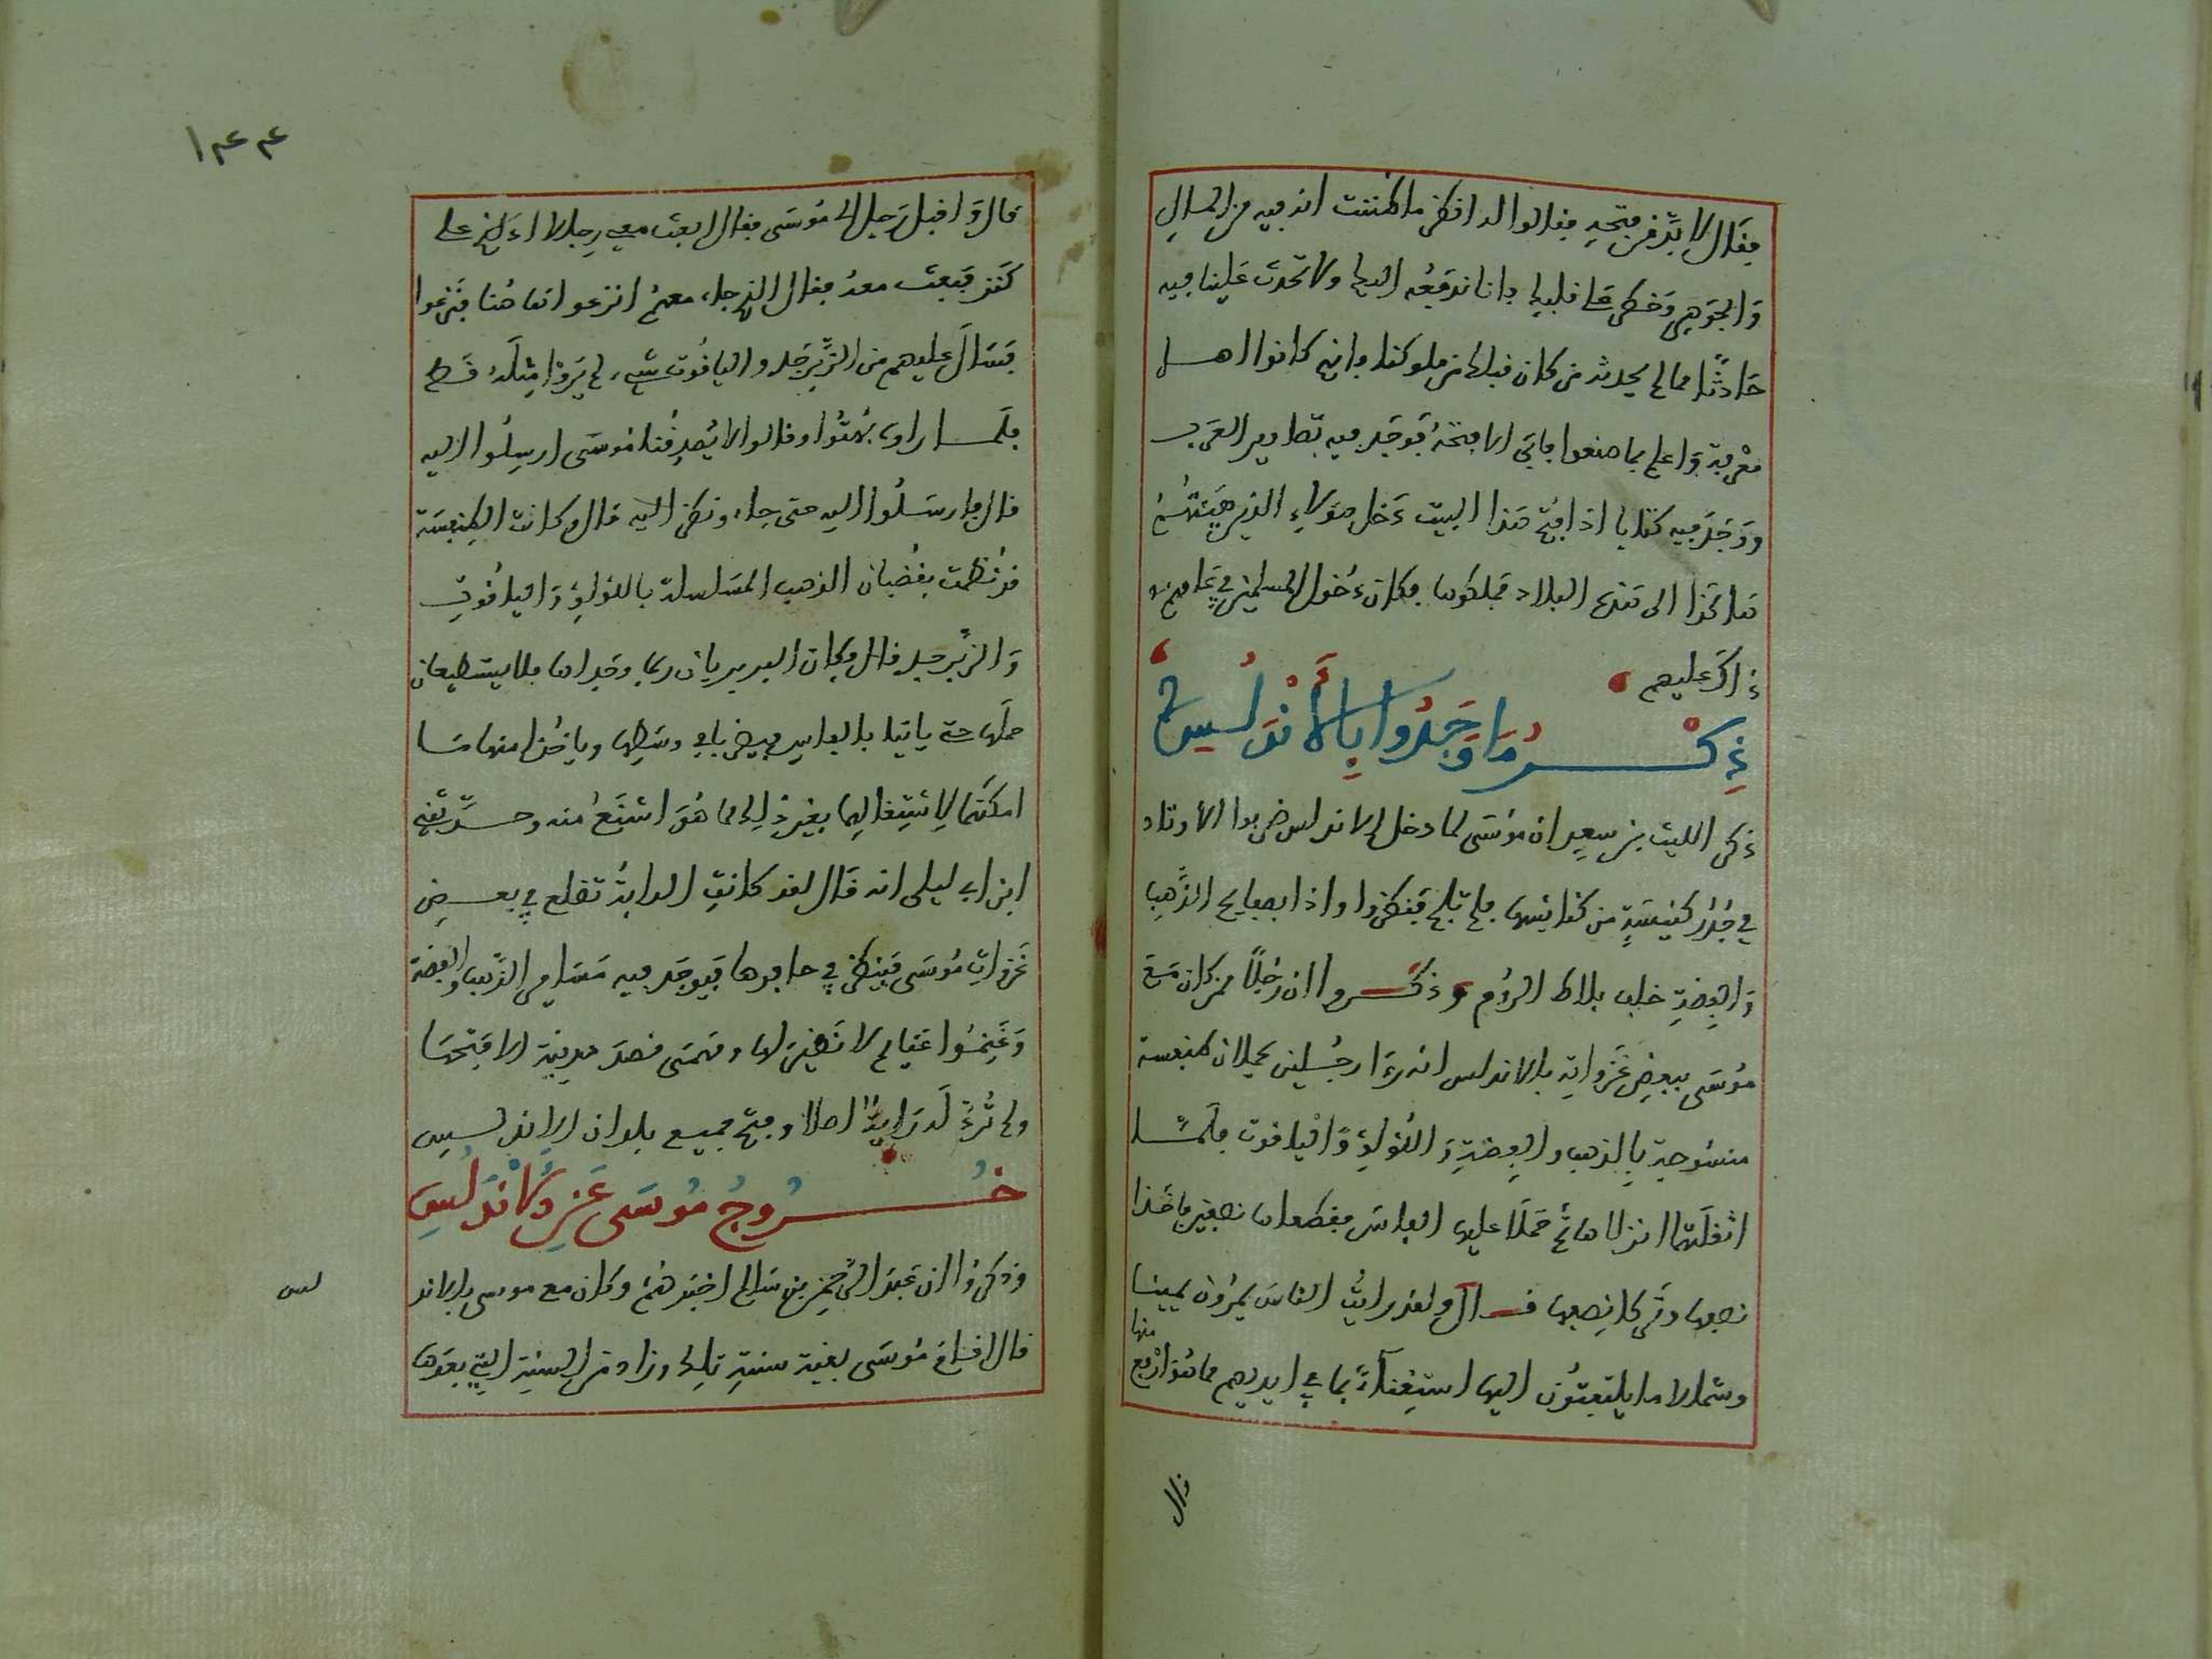 فقال لا بد من فتحه فقالوا له انظر ما ظننت ان فيه من المال
والجوهر وخطر على قلبك فانا ندفعه اليك ولا تحدث علينا فيه
حادثا مما لم يحدثه من كان قبلك من ملوكنا فانهم كانوا اهل
معرفة واعلم بما صنعوا فابى الا فتحه فوجد فيه تصاوير العرب
ووجد فيه كتابا اذا فتح هذا البيت دخل هؤلاء الذين هيئتهم
هاكذا الى هذه البلاد فملكوها فكان دخول المسلمين في عامهم
ذاك عليهم
ذِكْرُ مَا وَجَدُوا بِالأَنْدَلُسِ
ذكر الليث بن سعيد ان موسى لما دخل الاندلس ضربوا الاوتاد
في جدار كنيسة من كنائسها فلم تلج فنظروا واذا بصفايح الذهب
والفضة خلف بلاط الروم وذكروا ان رجلا ممن كان مع
موسى ببعض غزواته بالاندلس انه رءا رجلين يحملان طنفسة
منسوجة بالذهب والفضة واللؤلؤ والياقوت فلما
اثقلتهما انزلاها ثم حملا عليها الفاس فقطعاها نصفين فاخذا
نصفها وتركا نصفها قال ولقد رايت الناس يمرون يمينا
وشمالا ما يلتفتون اليها استغناء بما في ايديهم مما هو ارفع
منها
قال
١٤٤
قال واقبل رجل الى موسى فقال ابعث معي رجلا ادلهم على
كنز فبعث معه فقال الذي جاء معهم انزعوا هاهنا فنزعوا
فسال عليهم من الزبرجد والياقوت شيء لم يروا مثله قط
فلما راوه بهتوا وقالوا لا يصدقنا موسى ارسلوا اليه
قال فارسلوا اليه حتى جاء ونظر اليه قال وكانت الطنفسة
قد نظمت بقضبان الذهب المسلسلة باللؤلؤ والياقوت
والزبرجد قال وكان البربريان ربما وجداها فلا يستطيعان
حملها حتى ياتيا بالفاس فيضربا وسطها وياخذا منها ما
امكنهما لاشتغالهما بغير ذلك مما هو ارفع منه وحدثني
ابن ابي ليلى انه قال لقد كانت الدابة تقلع في بعض
غزوات موسى فينظر في حافرها فيوجد فيه مسامير الذهب والفضة
وغنموا غنايم لا نظير لها وهمتى قصد مدينة الا فتحها
ولم ترد له راية اصلا وفتح جميع بلدان الاندلس
خُرُوجُ مُوسَى عَنِ الأَنْدَلُسِ
وذكروا ان عبد الرحمن بن سالم اخبرهم وكان مع موسى بالاند
لس
قال اقام موسى بقية سنة تلك وزاد من السنة التي بعدها